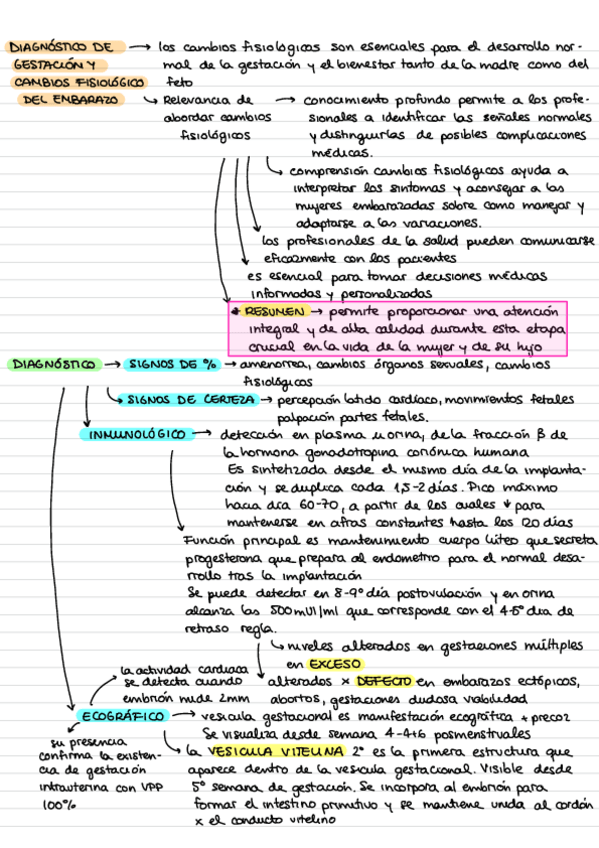 DIAGNÓSTICO DE → los cambios fisiológicos son esenciales para el desarrollo nor-
GESTACIÓN Y mal de la gestación y el bienestar tanto de la madre como del
CAMBIOS FISIOLÓGICO feto
DEL EMBARAZO ↳ Relevancia de → conocimiento profundo permite a los profe-
abordar cambios sionales a identificar las señales normales
fisiológicos y distinguirlas de posibles complicaciones
médicas.
↳ comprensión cambios fisiológicos ayuda a
interpretar los síntomas y aconsejar a las
mujeres embarazadas sobre como manejar y
adaptarse a las variaciones.
los profesionales de la salud pueden comunicarse
eficazmente con los pacientes
es esencial para tomar decisiones médicas
informadas y personalizadas
* RESUMEN → permite proporcionar una atención
integral y de alta calidad durante esta etapa
crucial en la vida de la mujer y de su hijo
DIAGNÓSTICO → SIGNOS DE % → amenorrea, cambios órganos sexuales, cambios
fisiológicos
↳ SIGNOS DE CERTEZA → percepción latido cardíaco, movimientos fetales
palpación partes fetales.
INMUNOLÓGICO → detección en plasma u orina, de la fracción β de
la hormona gonadotropina coriónica humana
Es sintetizada desde el mismo día de la implanta-
ción y se duplica cada 1,5-2 días. Pico máximo
hacia día 60-70, a partir de los cuales ↓ para
mantenerse en cifras constantes hasta los 120 días
Función principal es mantenimiento cuerpo lúteo que secreta
progesterona que prepara al endometrio para el normal desa-
rrollo tras la implantación
Se puede detectar en 8-9º día postovulación y en orina
alcanza las 500 mUI/ml que corresponde con el 4-5º día de
retraso regla.
↳ niveles alterados en gestaciones múltiples
en EXCESO
la actividad cardiaca
se detecta cuando
embrión mide 2mm
alterados x DEFECTO en embarazos ectópicos,
abortos, gestaciones dudosa viabilidad
ECOGRÁFICO → vesícula gestacional es manifestación ecográfica + precoz
Se visualiza desde semana 4-4+6 posmenstruales
su presencia
confirma la existen-
cia de gestación
intrauterina con VPP
100%
↳ la VESICULA VITELINA 2º es la primera estructura que
aparece dentro de la vesícula gestacional. Visible desde
5º semana de gestación. Se incorpora al embrión para
formar el intestino primitivo y se mantiene unida al cordón
x el conducto vitelino